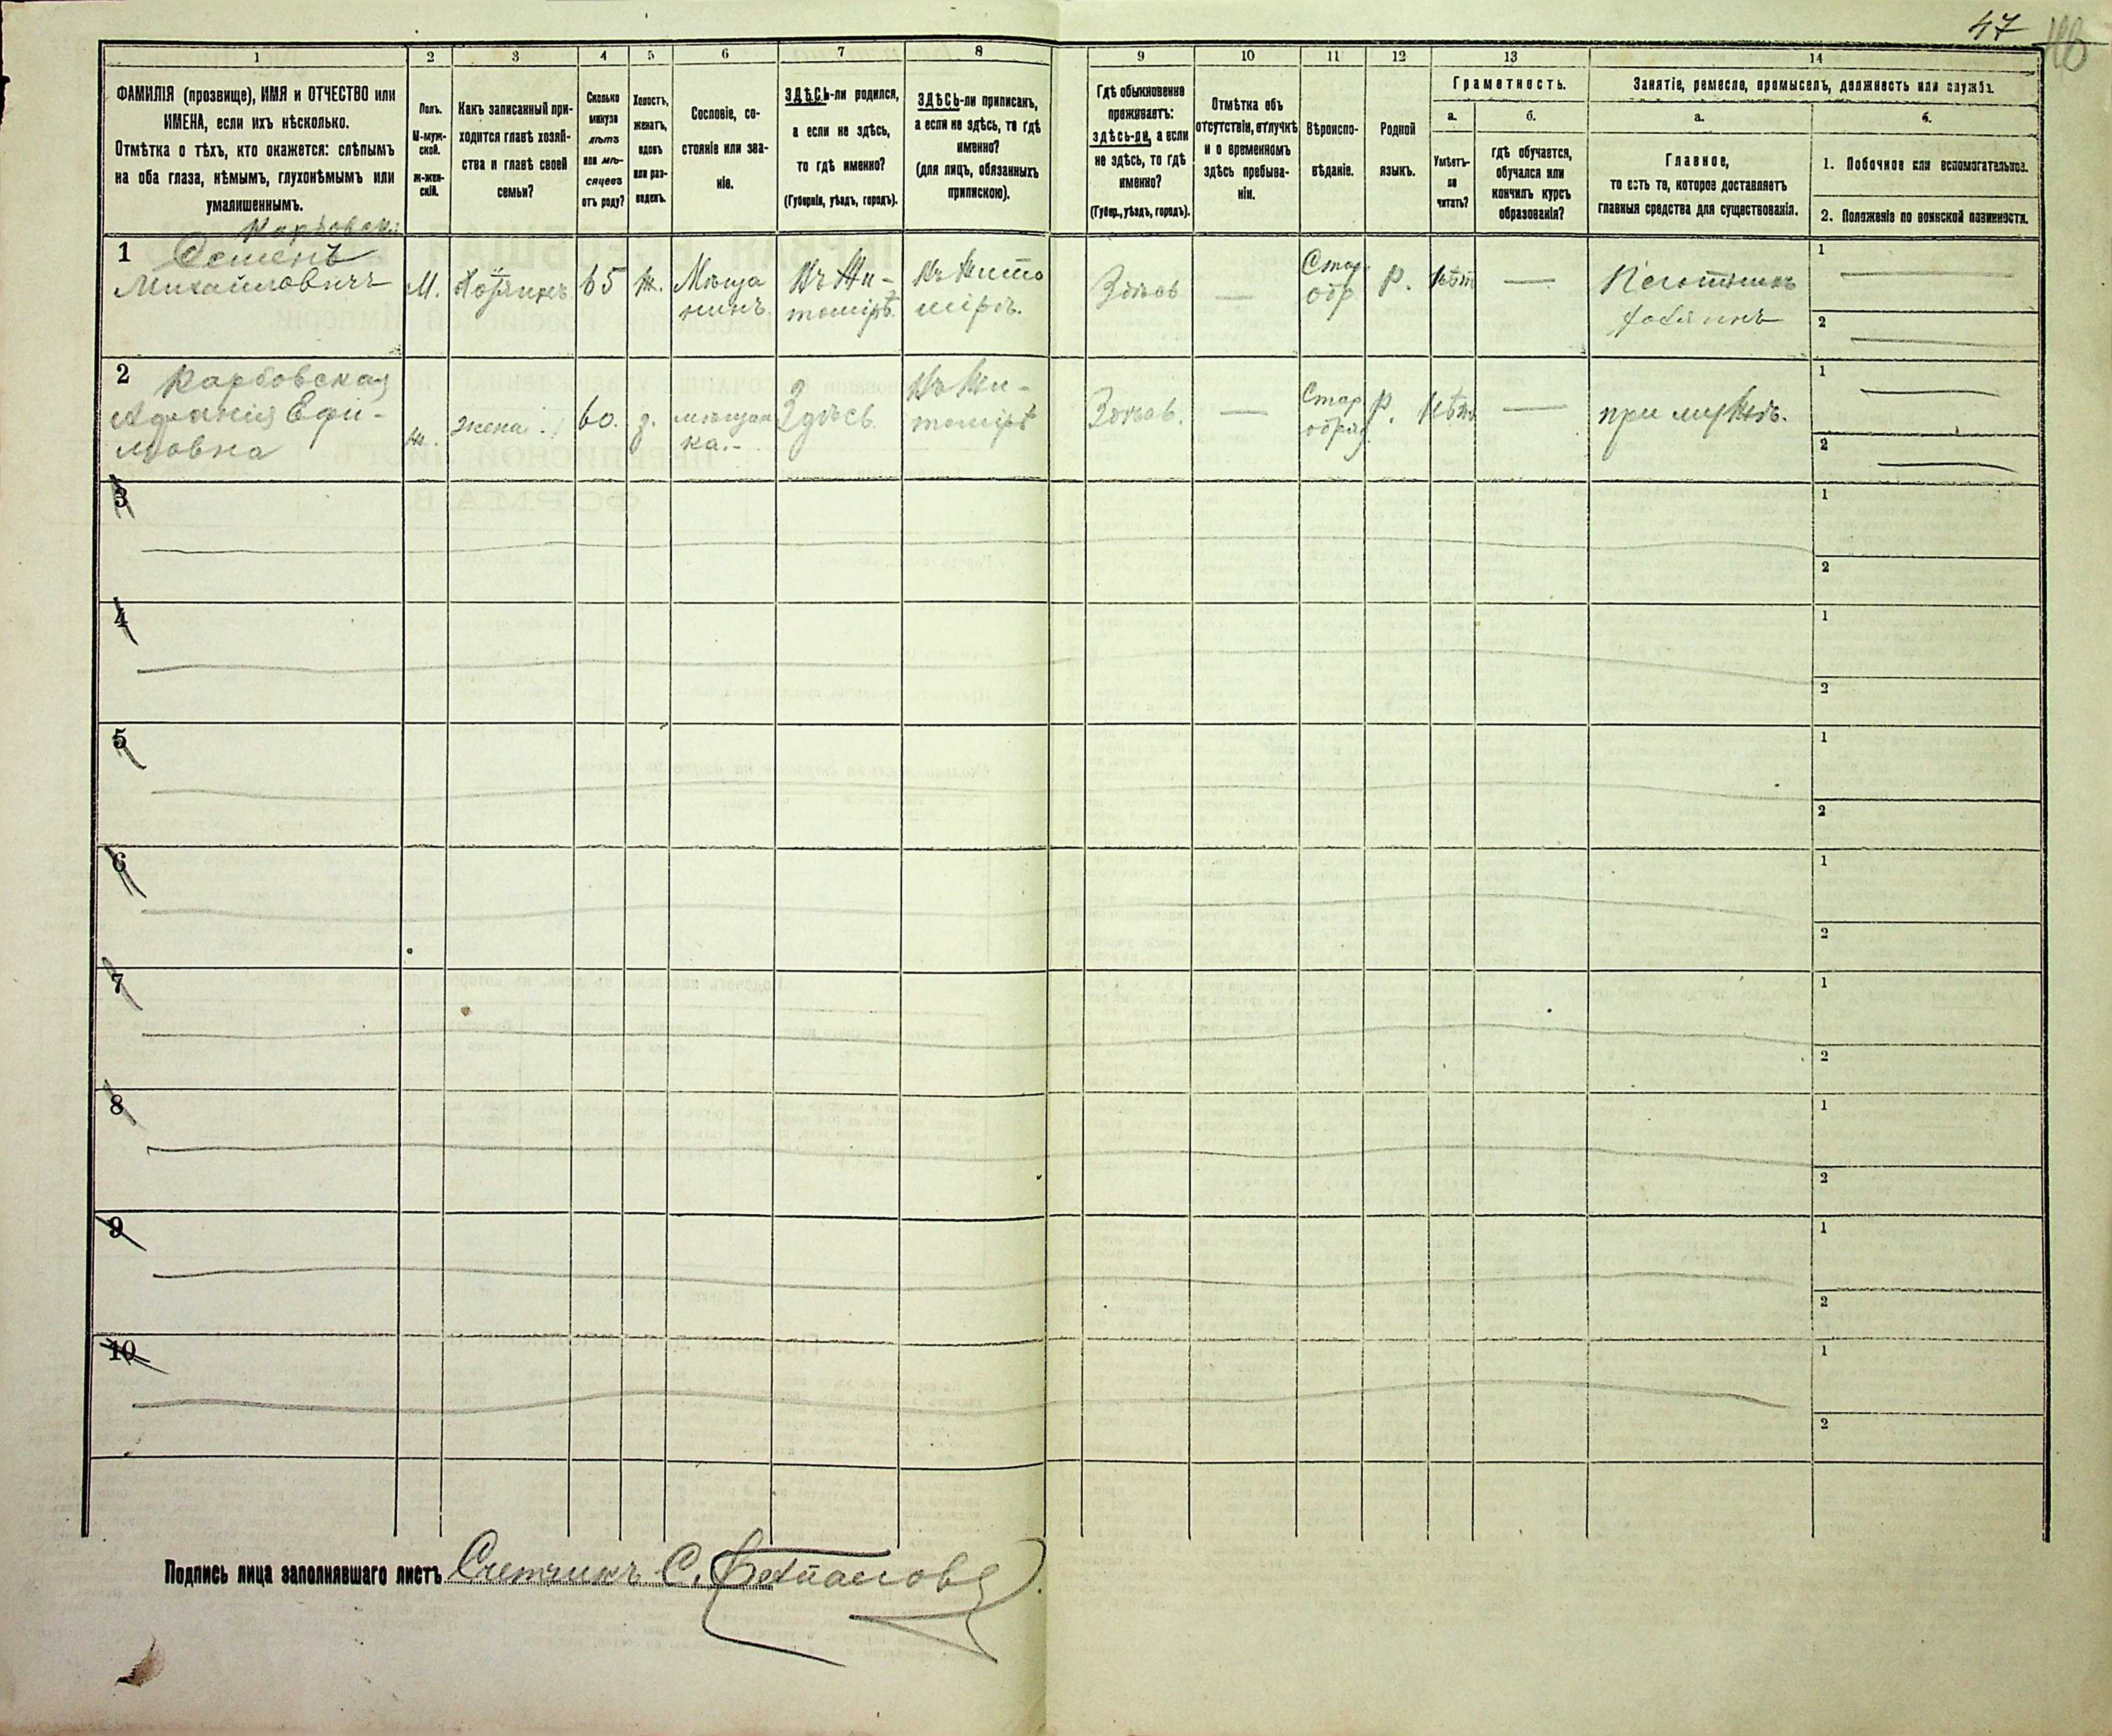 47
1 2 3 4 5 6 7 8 9 10 11 12 13 14
ФАМИЛІЯ (прозвище), ИМЯ и ОТЧЕСТВО или
ИМЕНА, если ихъ нѣсколько.
Отмѣтка о тѣхъ, кто окажется: слѣпымъ
на оба глаза, нѣмымъ, глухонѣмымъ или
умалишеннымъ.
Полъ.
М-муж-
ской.
ж-жен-
скій.
Какъ записанный при-
ходится главѣ хозяй-
ства и главѣ своей
семьи?
Сколько
минуло
лѣтъ
или мѣ-
сяцевъ
отъ роду?
Холостъ,
женатъ,
вдовъ
или раз-
веденъ.
Сословіе, со-
стояніе или зва-
ніе.
ЗДѢСЬ-ли родился,
а если не здѣсь,
то гдѣ именно?
(Губернія, уѣздъ, городъ).
ЗДѢСЬ-ли приписанъ,
а если не здѣсь, то гдѣ
именно?
(для лицъ, обязанныхъ
припискою).
Гдѣ обыкновенно
проживаетъ:
здѣсь-ли, а если
не здѣсь, то гдѣ
именно?
(Губер., уѣздъ, городъ).
Отмѣтка объ
отсутствіи, отлучкѣ
и о временномъ
здѣсь пребыва-
ніи.
Вѣроиспо-
вѣданіе.
Родной
языкъ.
Грамотность.
а.
Умѣетъ-
ли
читать?
б.
гдѣ обучается,
обучался или
кончилъ курсъ
образованія?
Занятіе, ремесло, промыселъ, должность или служба.
а.
Главное,
то есть то, которое доставляетъ
главныя средства для существованія.
б.
1. Побочное или вспомогательное.
2. Положеніе по воинской повинности.
1
Семенъ
Михайловичъ
М.
Хозяинъ
65
ж.
Мѣща
нинъ.
Въ Жи-
томирѣ.
Въ Жито
мірѣ.
Здѣсь
—
Стар.
обр.
Р.
нѣтъ
—
1
2
2
Карбовская
Ефи-
мовна
ж.
жена
60.
з.
мѣщан
ка.-
Здѣсь.
Въ Жи-
томірѣ
Здѣсь.
—
Стар
обряд.
Р.
нѣтъ
—
при мужѣ.
1
2
3
1
2
4
1
2
5
1
2
6
1
2
7
1
2
8
1
2
9
1
2
10
1
2
Подпись лица заполнявшаго листъ Счетчикъ С.